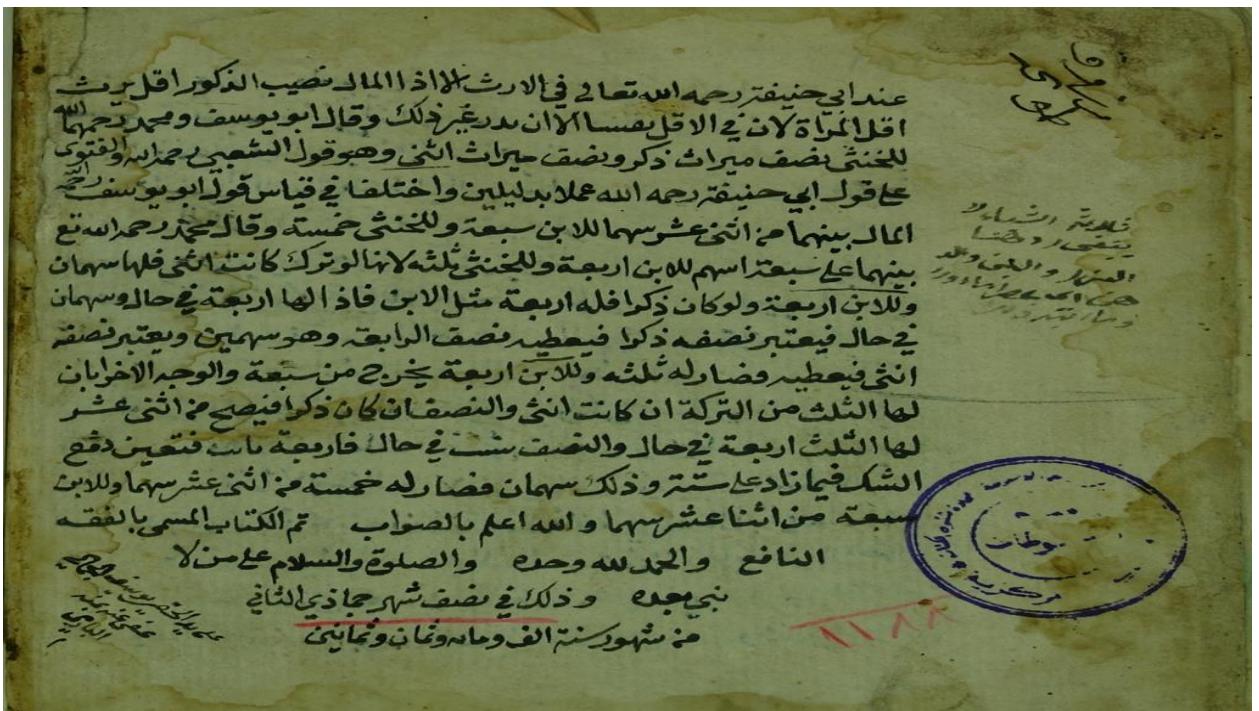 عند ابي حنيفة رحمه الله تعالى في الارث الا اذا المال نصيب الذكور اقل يرث
اقل المراة لان في الاقل يقينا الا ان غير ذلك وقال ابو يوسف ومحمد رحمهما الله
للخنثى نصف ميراث ذكر ونصف ميراث انثى وهو قول الشعبي رحمه الله والفتوى
على قول ابي حنيفة رحمه الله عملا بدليلين واختلفا في قياس قول ابو يوسف رحمه الله
المال بينهما من اثنى عشر سهما للابن سبعة وللخنثى خمسة وقال محمد رحمه الله تع
بينهما على سبعة اسهم للابن اربعة وللخنثى ثلثه لانها لو ترك كانت انثى فلها سهمان
وللابن اربعة ولو كان ذكرا فله اربعة مثل الابن فاذا لها اربعة في حال وسهمان
في حال فيعتبر نصفه ذكرا فيعطيه نصف الرابعة وهو سهمين ويعتبر نصفه
انثى فيعطيه فصار له ثلثه وللابن اربعة يخرج من سبعة والوجه الاخر ابان
لها الثلث من التركة ان كانت انثى والنصف ان كان ذكرا فيصح من اثنى عشر
لها الثلث اربعة في حال والنصف ستت في حال فاربعة فتعين دفع
الشك فيما زاد على ستة وذلك سهمان فصار له خمسة من اثنى عشر سهما وللابن
سبعة من اثنا عشر سهما والله اعلم بالصواب تم الكتاب المسمى بالفقه
النافع والحمد لله وحده والصلوة والسلام على من لا
نبي بعده وذلك في نصف شهر جماذي الثاني
من شهور سنة الف ومايه وثمان وثمانين
١١٨٨
ثلاثة اشياء لا